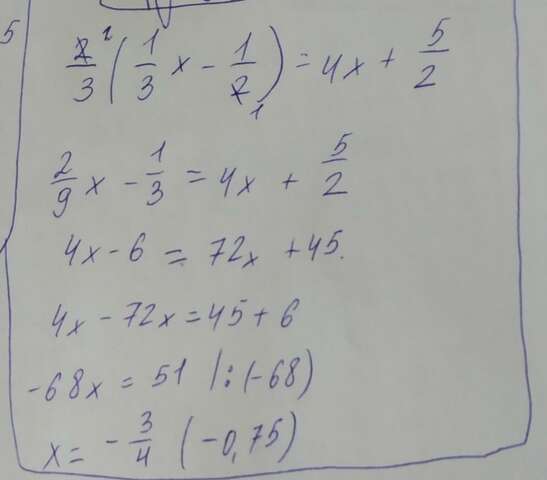 5
2/3 1 (1/3 x - 1/2 1) = 4x + 5/2
2/9 x - 1/3 = 4x + 5/2
4x - 6 = 72x + 45.
4x - 72x = 45 + 6
-68x = 51 |:(-68)
x = - 3/4 (-0,75)